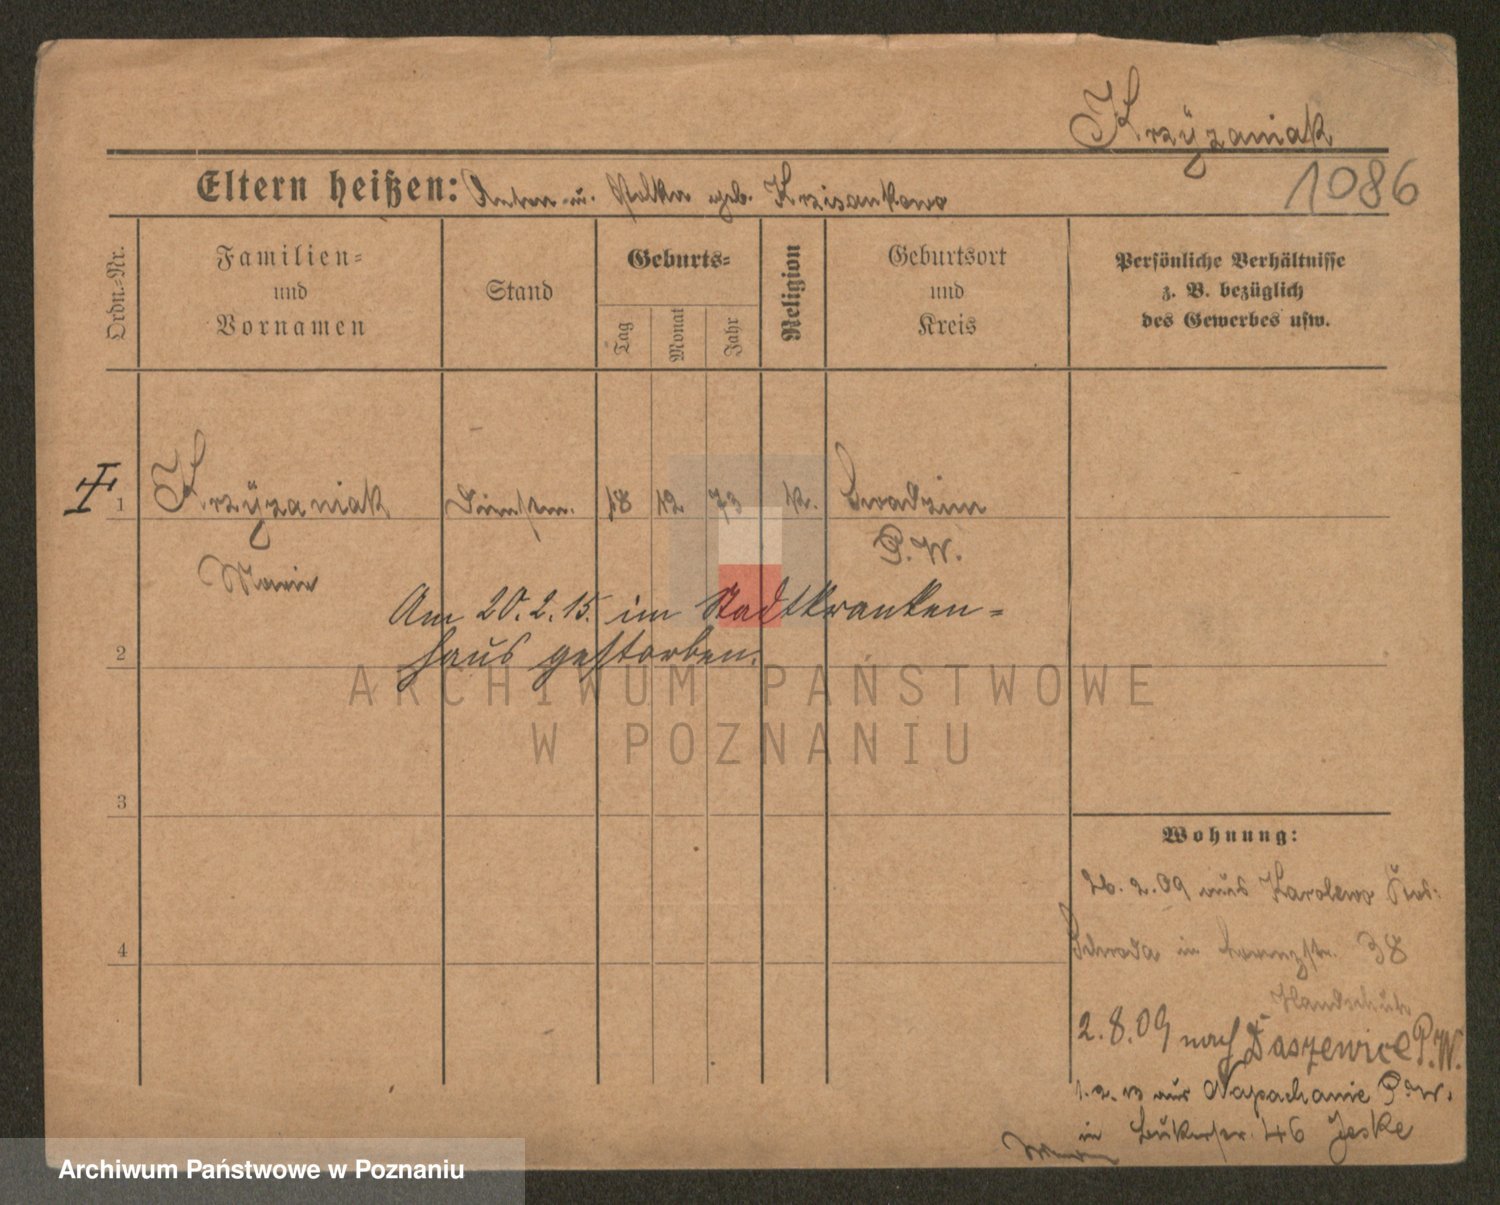 Krzÿzaniak
1086
Eltern heißen: Anton u. geb. Krzisankowo
Ordn.-Nr.
Familien-
und
Vornamen
Stand
Geburts-
Tag
Monat
Jahr
Religion
Geburtsort
und
Kreis
Persönliche Verhältnisse
z. B. bezüglich
des Gewerbes usw.
1 Krzÿzaniak 18 12 73 k.
P. W.
Marie
Am 20. 2. 15. im Stadtkranken-
haus gestorben.
2
3
4
Wohnung:
26. 2. 09 aus Karolewo
Schroda in 38
Handschuh
2. 8. 09 nach Daszewice P. W.
aus Napachanie P. W.
in Bukerstr. 46 Jeske
ARCHIWUM PAŃSTWOWE
W POZNANIU
Archiwum Państwowe w Poznaniu